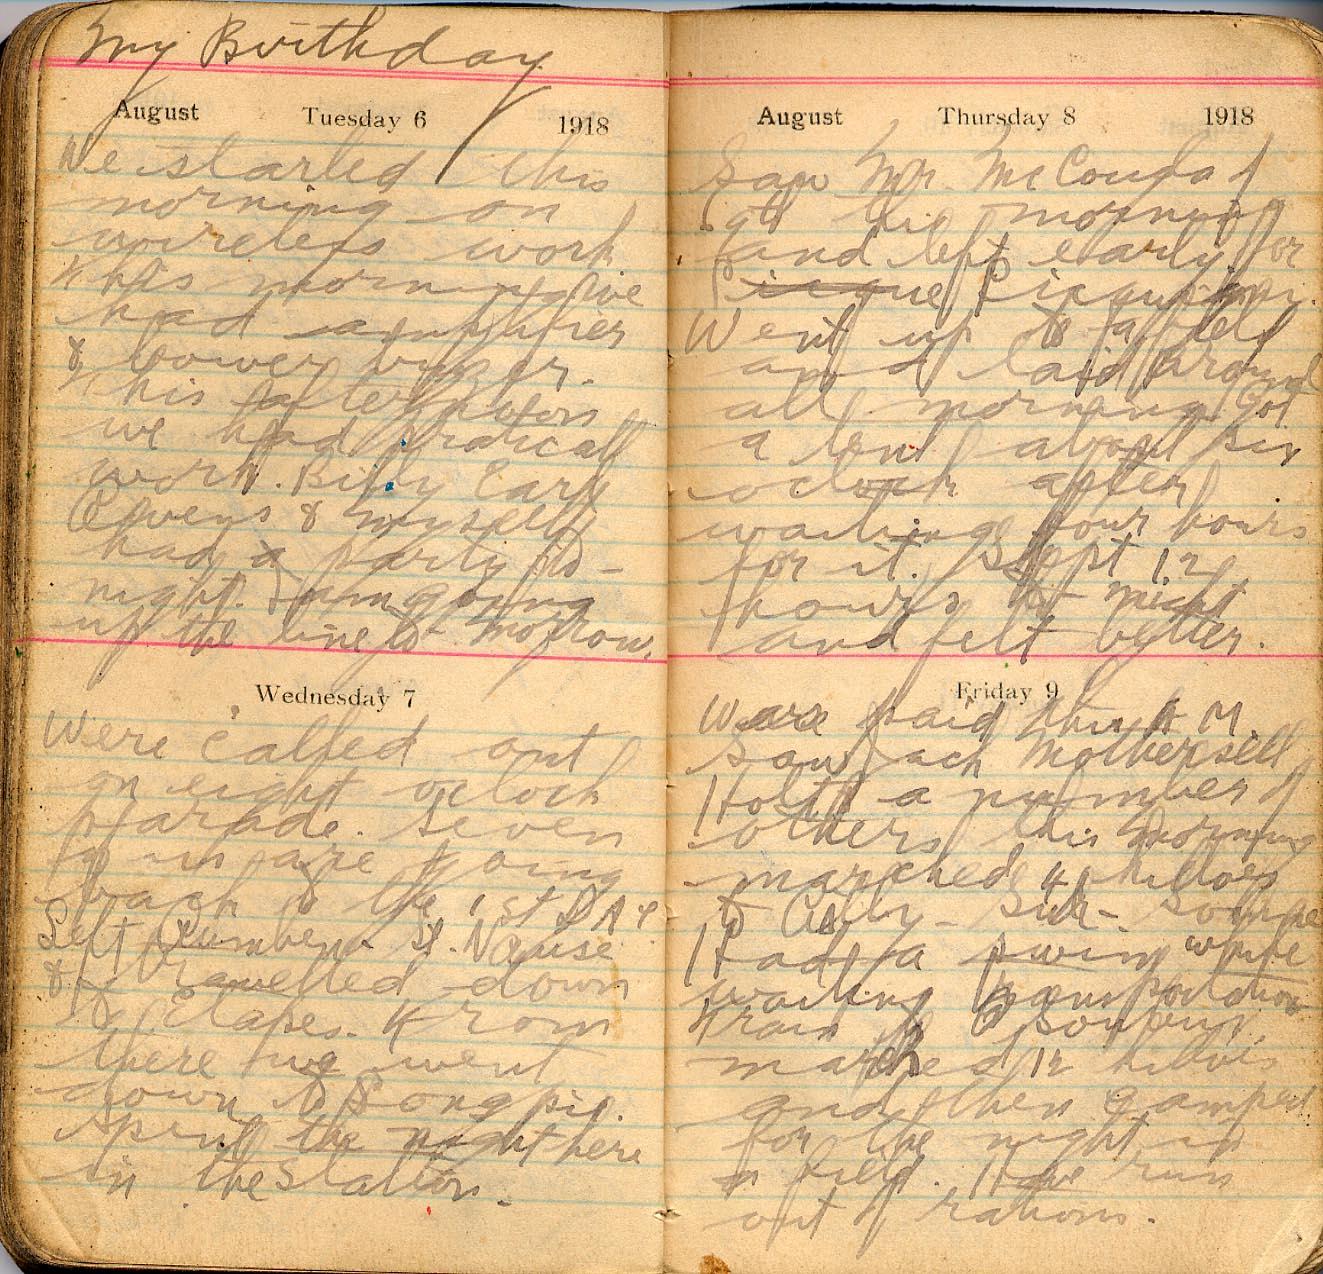 My Birthday
August Tuesday 6 1918
We started this
morning on
wireless work
this morning We
had amplifier
& power buzzer.
This afternoon
we had pratical
work. Billy Earl
Owens & myself
had a party to-
night. I am going
up the line to-morrow.
Wednesday 7
Were called out
on eight oclock
parade. Seven
of us are going
back to the 1st D A C.
Left St. Naise
& travelled down
to Etapes. From
there we went
down to
spent the night here
in the Station.
August Thursday 8 1918
Saw Mr. Mc
this morning
and left early for

Went up to a field
and laid around
all morning. Got
a tent about six
oclock after
waiting four hours
for it. Slept 12
hours to-night
and felt better.
Friday 9
Were paid this A M.
Saw Jach Mothersill
Holt & a number of
others this morning
marched 4 kiloes
to Ailly-Sur-Somme
Had a swim while
waiting transportation
train to
marched 12 kiloes
and then camped
for the night in
a field. Have run
out of rations.